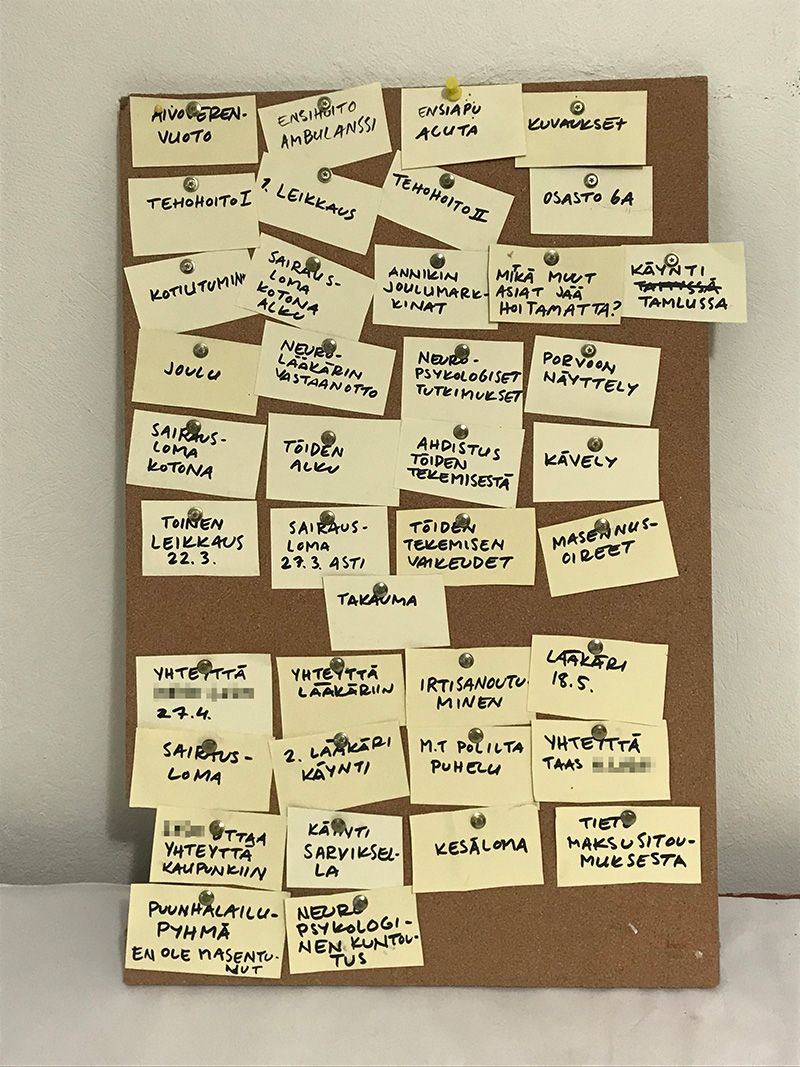 AIVOVEREN-
VUOTO
ENSIHOITO
AMBULANSSI
ENSIAPU
ACUTA
KUVAUKSET
TEHOHOITO I
1. LEIKKAUS
TEHOHOITO II
OSASTO 6A
KOTIUTUMIN
SAIRAUS-
LOMA
KOTONA
ALKU
ANNIKIN
JOULUMARK-
KINAT
MIKÄ MUUT
ASIAT JÄÄ
HOITAMATTA?
KÄYNTI
TAMLUSSA
JOULU
NEURO-
LÄÄKÄRIN
VASTAANOTTO
NEURO-
PSYKOLOGISET
TUTKIMUKSET
PORVOON
NÄYTTELY
SAIRAUS-
LOMA
KOTONA
TÖIDEN
ALKU
AHDISTUS
TÖIDEN
TEKEMISESTÄ
KÄVELY
TOINEN
LEIKKAUS
22.3.
SAIRAUS-
LOMA
27.3. ASTI
TÖIDEN
TEKEMISEN
VAIKEUDET
MASENNUS-
OIREET
TAKAUMA
YHTEYTTÄ
27.4.
YHTEYTTÄ
LÄÄKÄRIIN
IRTISANOUTU-
MINEN
LÄÄKÄRI
18.5.
SAIRAUS-
LOMA
2. LÄÄKÄRI
KÄYNTI
M.T POLILTA
PUHELU
YHTEYTTÄ
TAAS
OTTAA
YHTEYTTÄ
KAUPUNKIIN
KÄYNTI
SARVIKSEL-
LA
KESÄLOMA
TIETO
MAKSUSITOU-
MUKSESTA
PUUNHALAILU-
PYHMÄ
EN OLE MASENTU-
NUT
NEURO
PSYKOLOGI-
NEN KUNTOU-
TUS